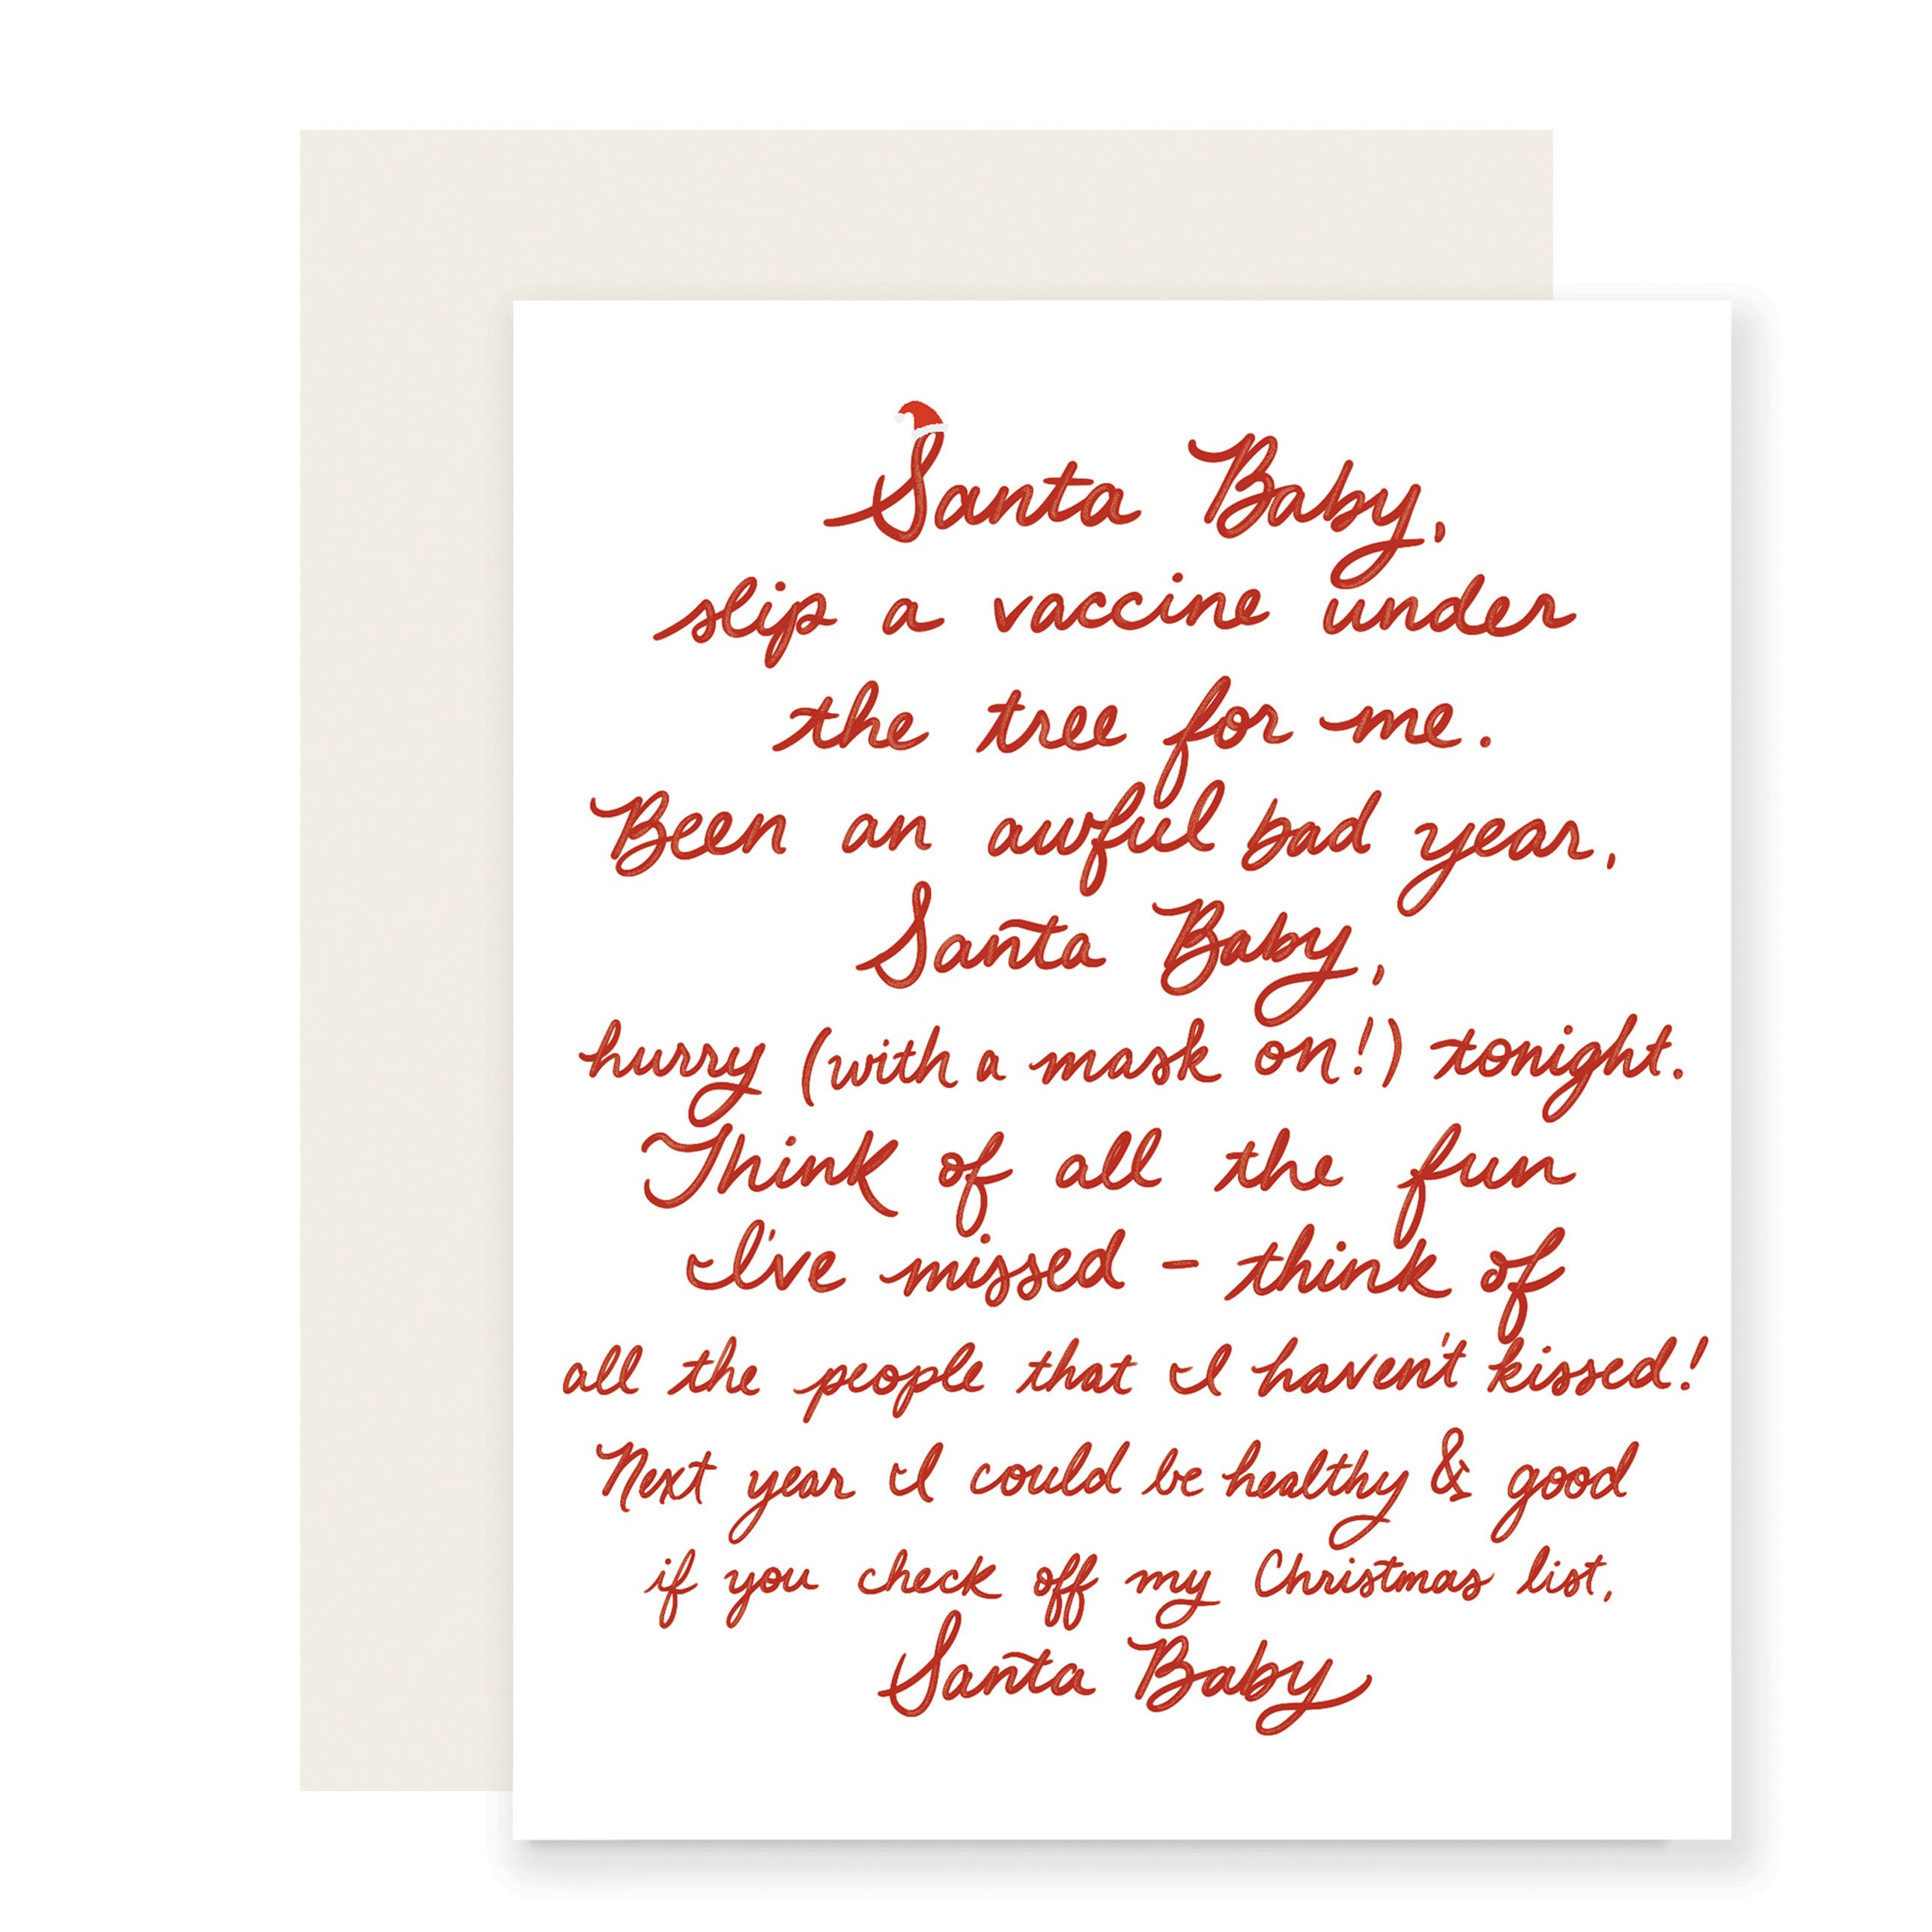 Santa Baby,
slip a vaccine under
the tree for me.
Been an awful bad year,
Santa Baby,
hurry (with a mask on!) tonight.
Think of all the fun
I've missed - think of
all the people that I haven't kissed!
Next year I could be healthy & good
if you check off my Christmas list,
Santa Baby